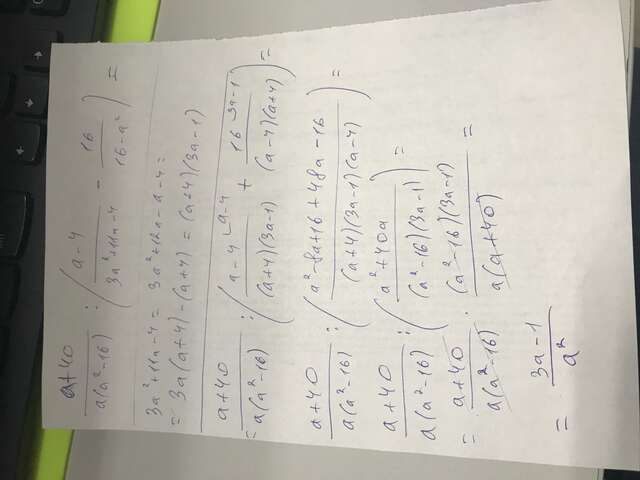 (a+40)/(a(a²-16)) : ((a-4)/(3a²+11a-4) - 16/(16-a²)) =
3a²+11a-4 = 3a²+12a-a-4 =
= 3a(a+4)-(a+4) = (a+4)(3a-1)
= (a+40)/(a(a²-16)) : ((a-4)^(a-4)/((a+4)(3a-1)) + 16^(3a-1)/((a-4)(a+4))) =
(a+40)/(a(a²-16)) : ((a²-8a+16+48a-16)/((a+4)(3a-1)(a-4))) =
(a+40)/(a(a²-16)) : ((a²+40a)/((a²-16)(3a-1))) =
= (a+40)/(a(a²-16)) · ((a²-16)(3a-1))/(a(a+40)) =
= (3a-1)/a²